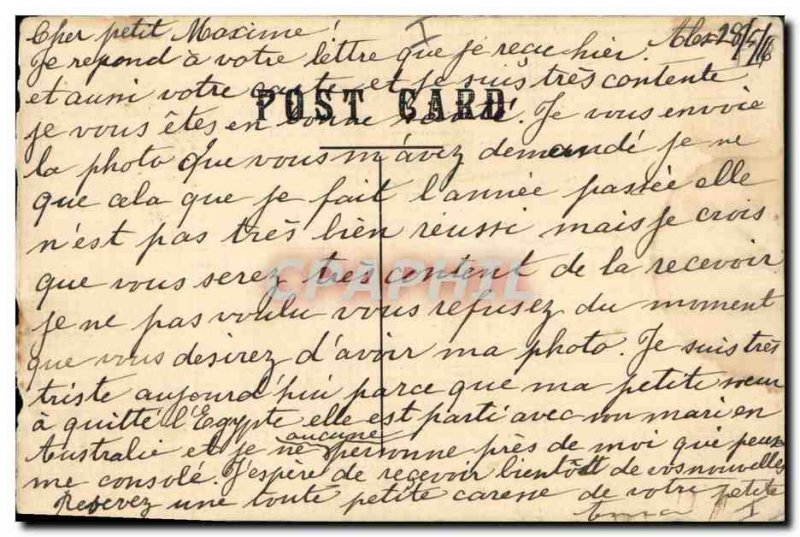 Cher petit Maxime!
Je repond à votre lettre que je recu hier. Alex 28/5/16
et aussi votre carte et je suis très contente
POST CARD
je vous êtes en bonne santé. Je vous envoie
la photo que vous m'avez demandé je ne
que cela que je fait l'année passée elle
n'est pas très bien réussi mais je crois
que vous serez tres content de la recevoir
CPAPHIL
je ne pas voulu vous refusez du moment
que vous desirez d'avoir ma photo. Je suis très
triste aujourd'hui parce que ma petite soeur
à quitté l'Egypte elle est parti avec son mari en
Australie et je ne aucune personne près de moi que peux
me consolé. J'espère de reçevoir bientôt de vos nouvelles
Recevez une toute petite caresse de votre petite